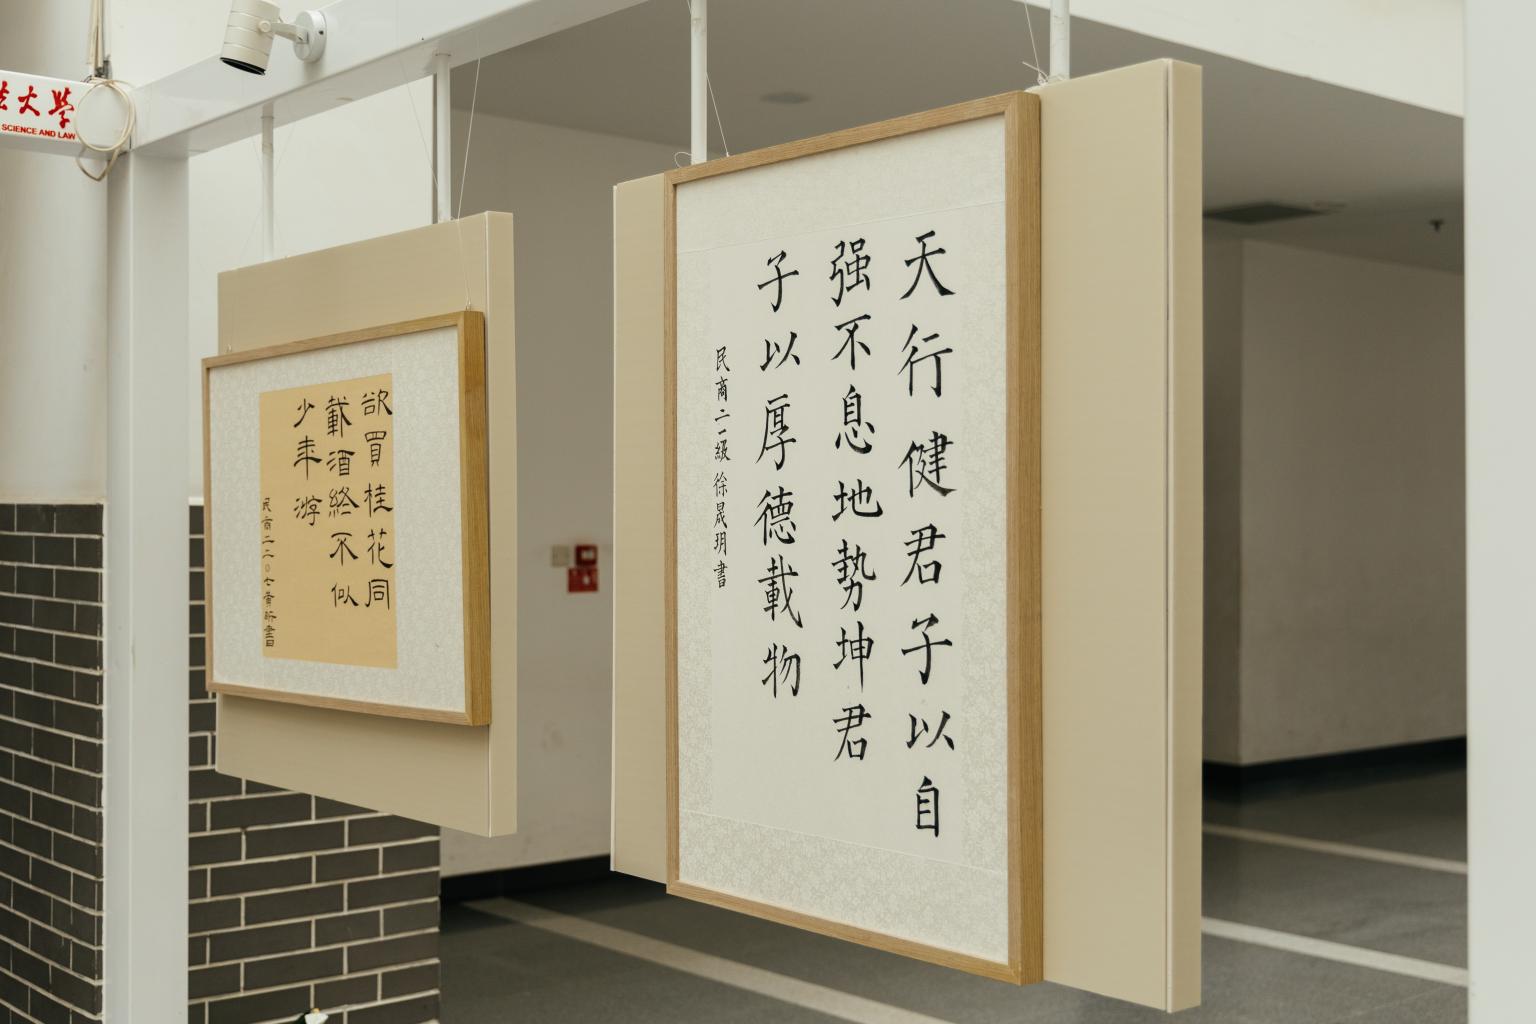 法大學
SCIENCE AND LAW
欲買桂花同
載酒終不似
少年游
民商二二〇七黄昕書
天行健君子以自
强不息地勢坤君
子以厚德載物
民商二一級徐晟玥書